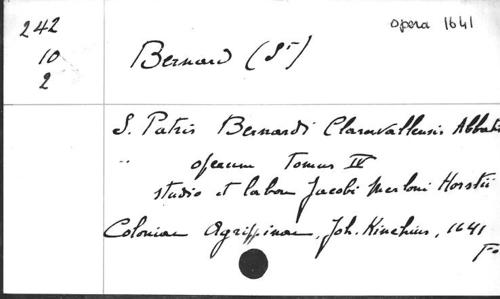 242
10
2
opera 1641
Bernard (St)
S. Patris Bernardi Claravallensis Abbatis
" operum Tomus IV
studio et labore Jacobi Merloni Horstii
Coloniae Agrippinae, Joh. Kinchius, 1641
Fo